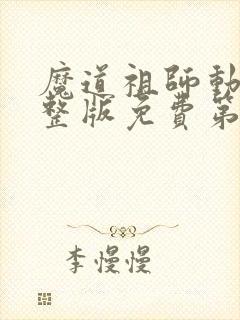 魔道祖師動
整版免費第
李慢慢